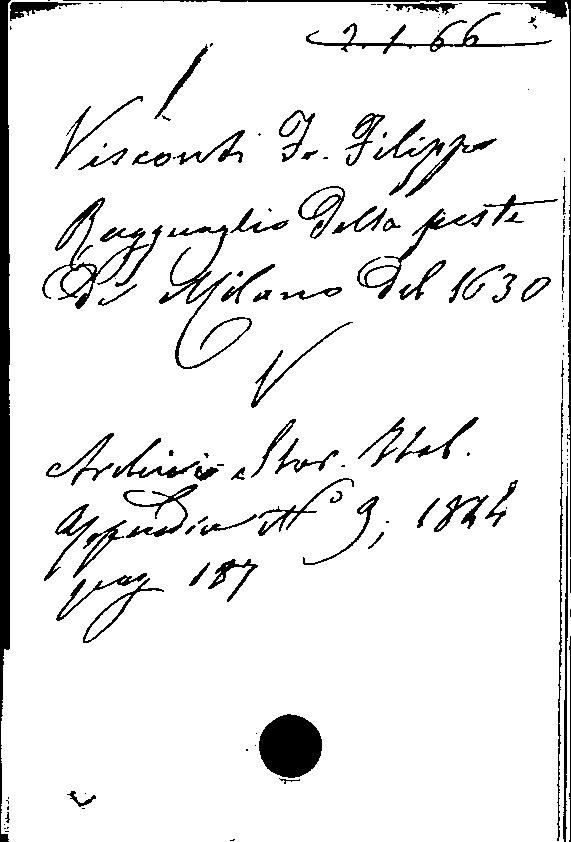 2.1.66
Visconti Fr. Filippo
Ragguaglio della peste
Di Milano del 1630
V
Archivio Stor. Ital.
Appendice N° 9, 1844
pag 187